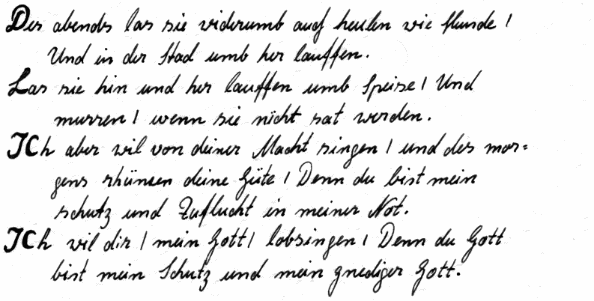 Des abends las sie widerumb auch heulen wie Hunde /
Und in der Stad umb her lauffen.
Las sie hin und her lauffen umb Speise / Und
murren / wenn sie nicht sat werden.
ICh aber wil von deiner Macht singen / und des mor=
gens rhümen deine Güte / Denn du bist mein
schutz und Zuflucht in meiner Not.
ICh wil dir / mein Gott / lobsingen / Denn du Gott
bist mein Schutz und mein gnediger Gott.